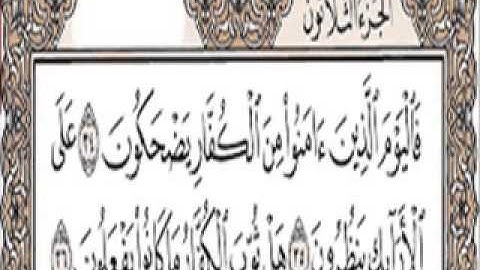 الجزء الثلاثون
فَٱلْيَوْمَ ٱلَّذِينَ ءَامَنُوا۟ مِنَ ٱلْكُفَّارِ يَضْحَكُونَ ٣٤ عَلَى
ٱلْأَرَآئِكِ يَنظُرُونَ ٣٥ هَلْ ثُوِّبَ ٱلْكُفَّارُ مَا كَانُوا۟ يَفْعَلُونَ ٣٦